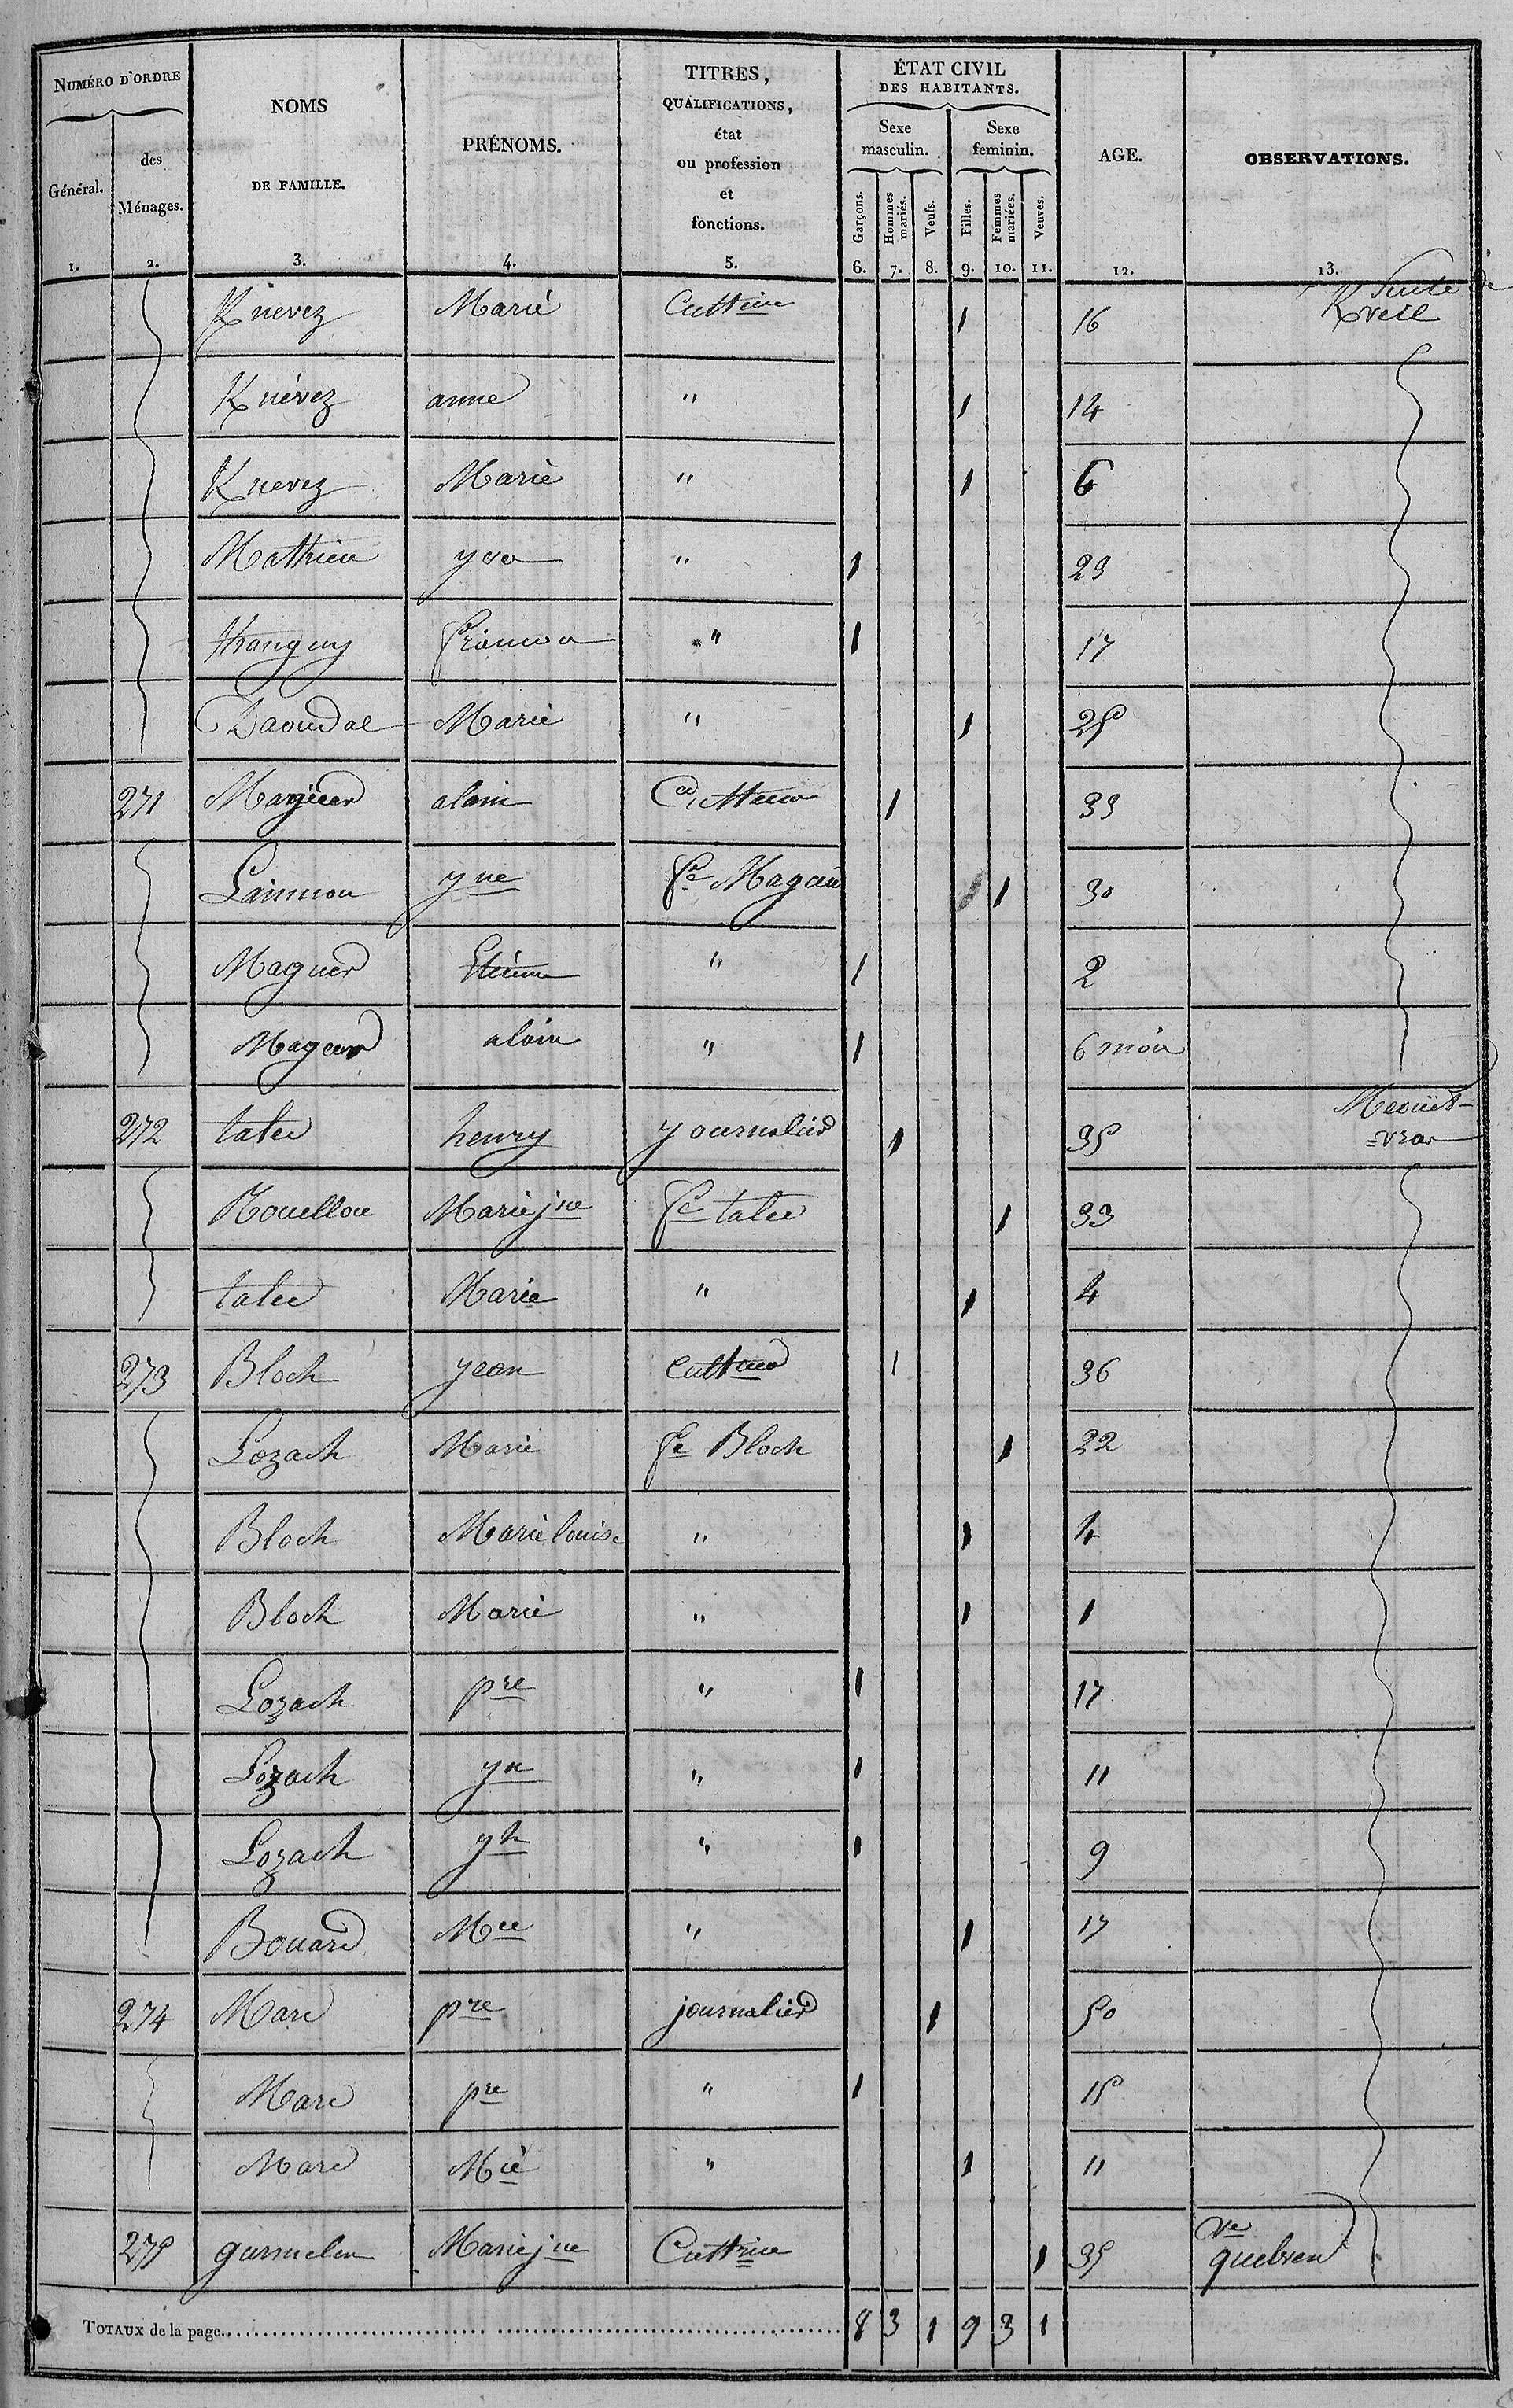 NUMÉRO D'ORDRE
Général.
des Ménages.
NOMS DE FAMILLE.
PRÉNOMS.
TITRES, QUALIFICATIONS, état ou profession et fonctions.
ÉTAT CIVIL DES HABITANTS.
Sexe masculin.
Sexe feminin.
Garçons.
Hommes mariés.
Veufs.
Filles.
Femmes mariées.
Veuves.
AGE.
OBSERVATIONS.
1. 2. 3. 4. 5. 6. 7. 8. 9. 10. 11. 12. 13.
Knevez Marie 1 16 Suite de
Knévez anne " 1 14
Knevez Marie " 1 6
Mathieu yves " 1 23
" 1 17
Daoudal Marie " 1 25
271 Maguer alain 1 33
yne fe 1 30
Maguer Etienne " 1 2
Maguer alain " 1 6 mois
272 talec henry journalier 1 35
Rouellou Marie jne fe talec 1 33
talec Marie " 1 4
273 Bloch yean Cultteur 1 36
Lozach Marie fe Bloch 1 22
Bloch Marie louise " 1 4
Bloch Marie " 1 1
Lozach pre " 1 17
Lozach yn " 1 11
Lozach yh " 1 9
Bouard Mee " 1 17
274 Marc pre journalier 1 50
Marc pre " 1 15
Marc Mie " 1 11
275 garmelen Marie jne Culttrice 1 35 Ve quebren
TOTAUX de la page 8 3 1 9 3 1